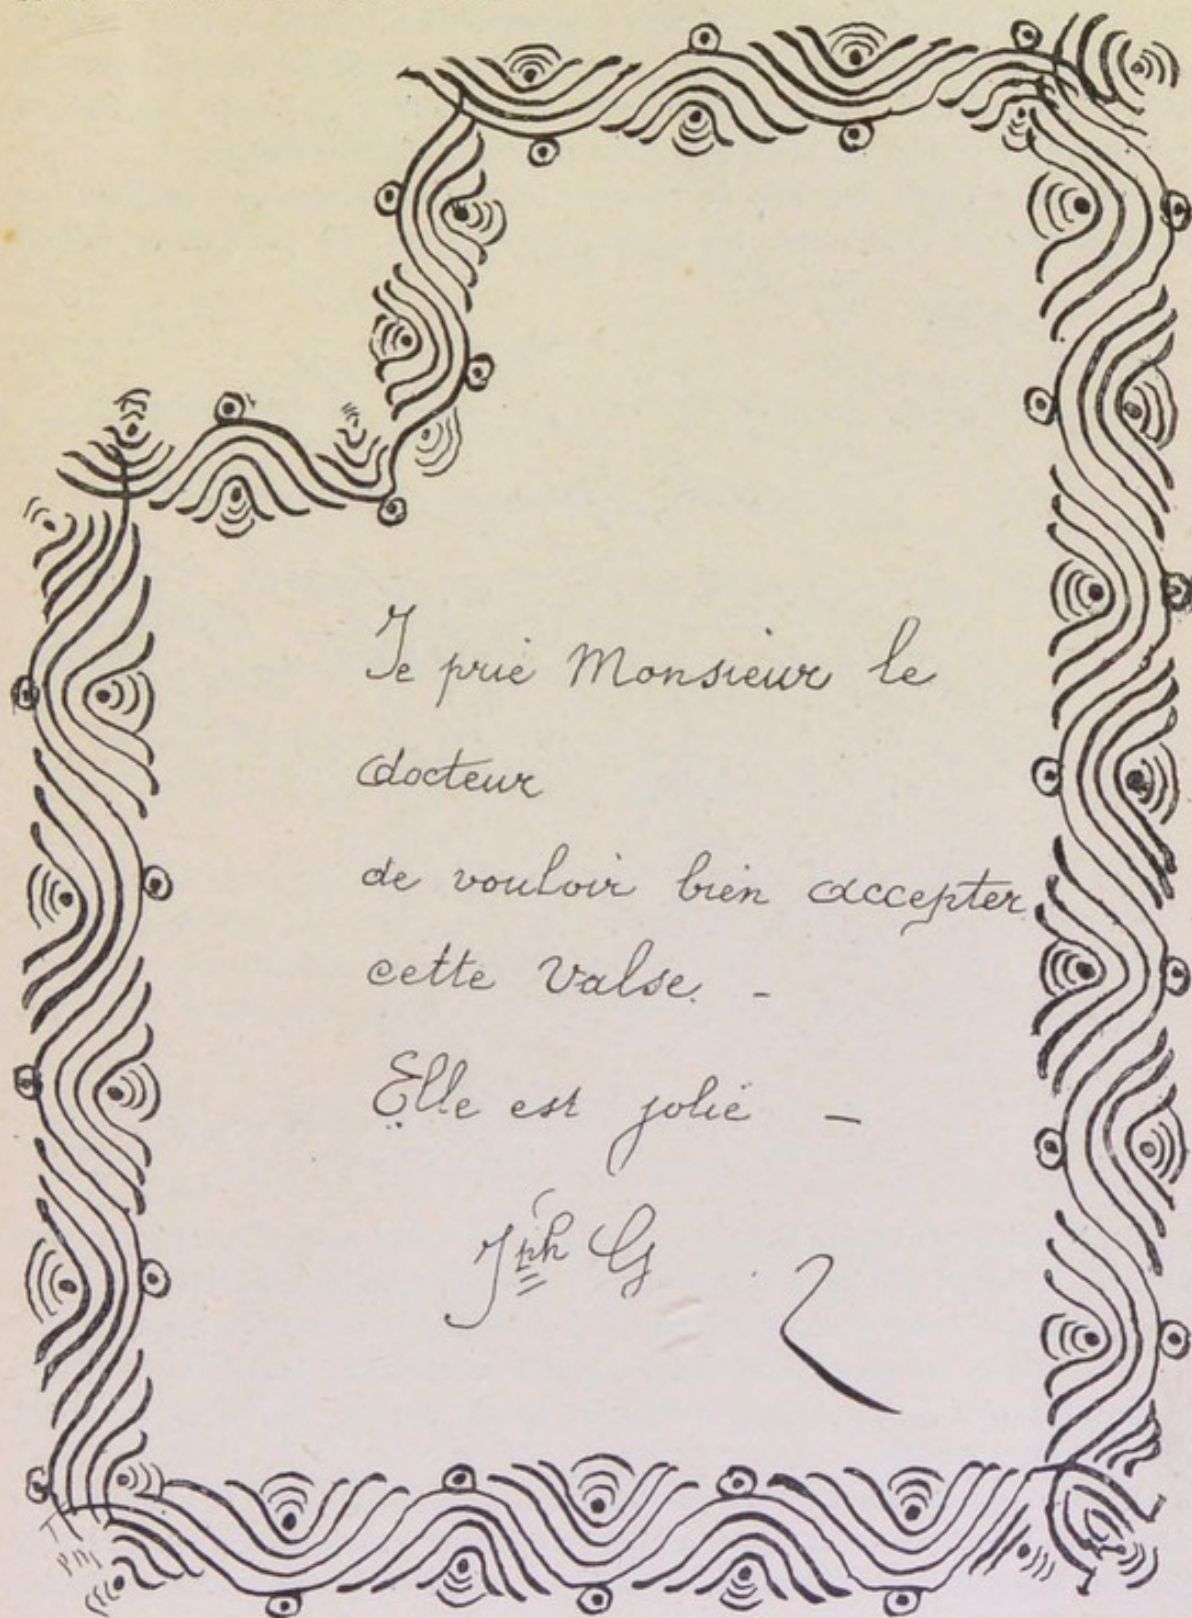 Je prie Monsieur le
docteur
de vouloir bien accepter
cette valse. -
Elle est jolie -
Jph G